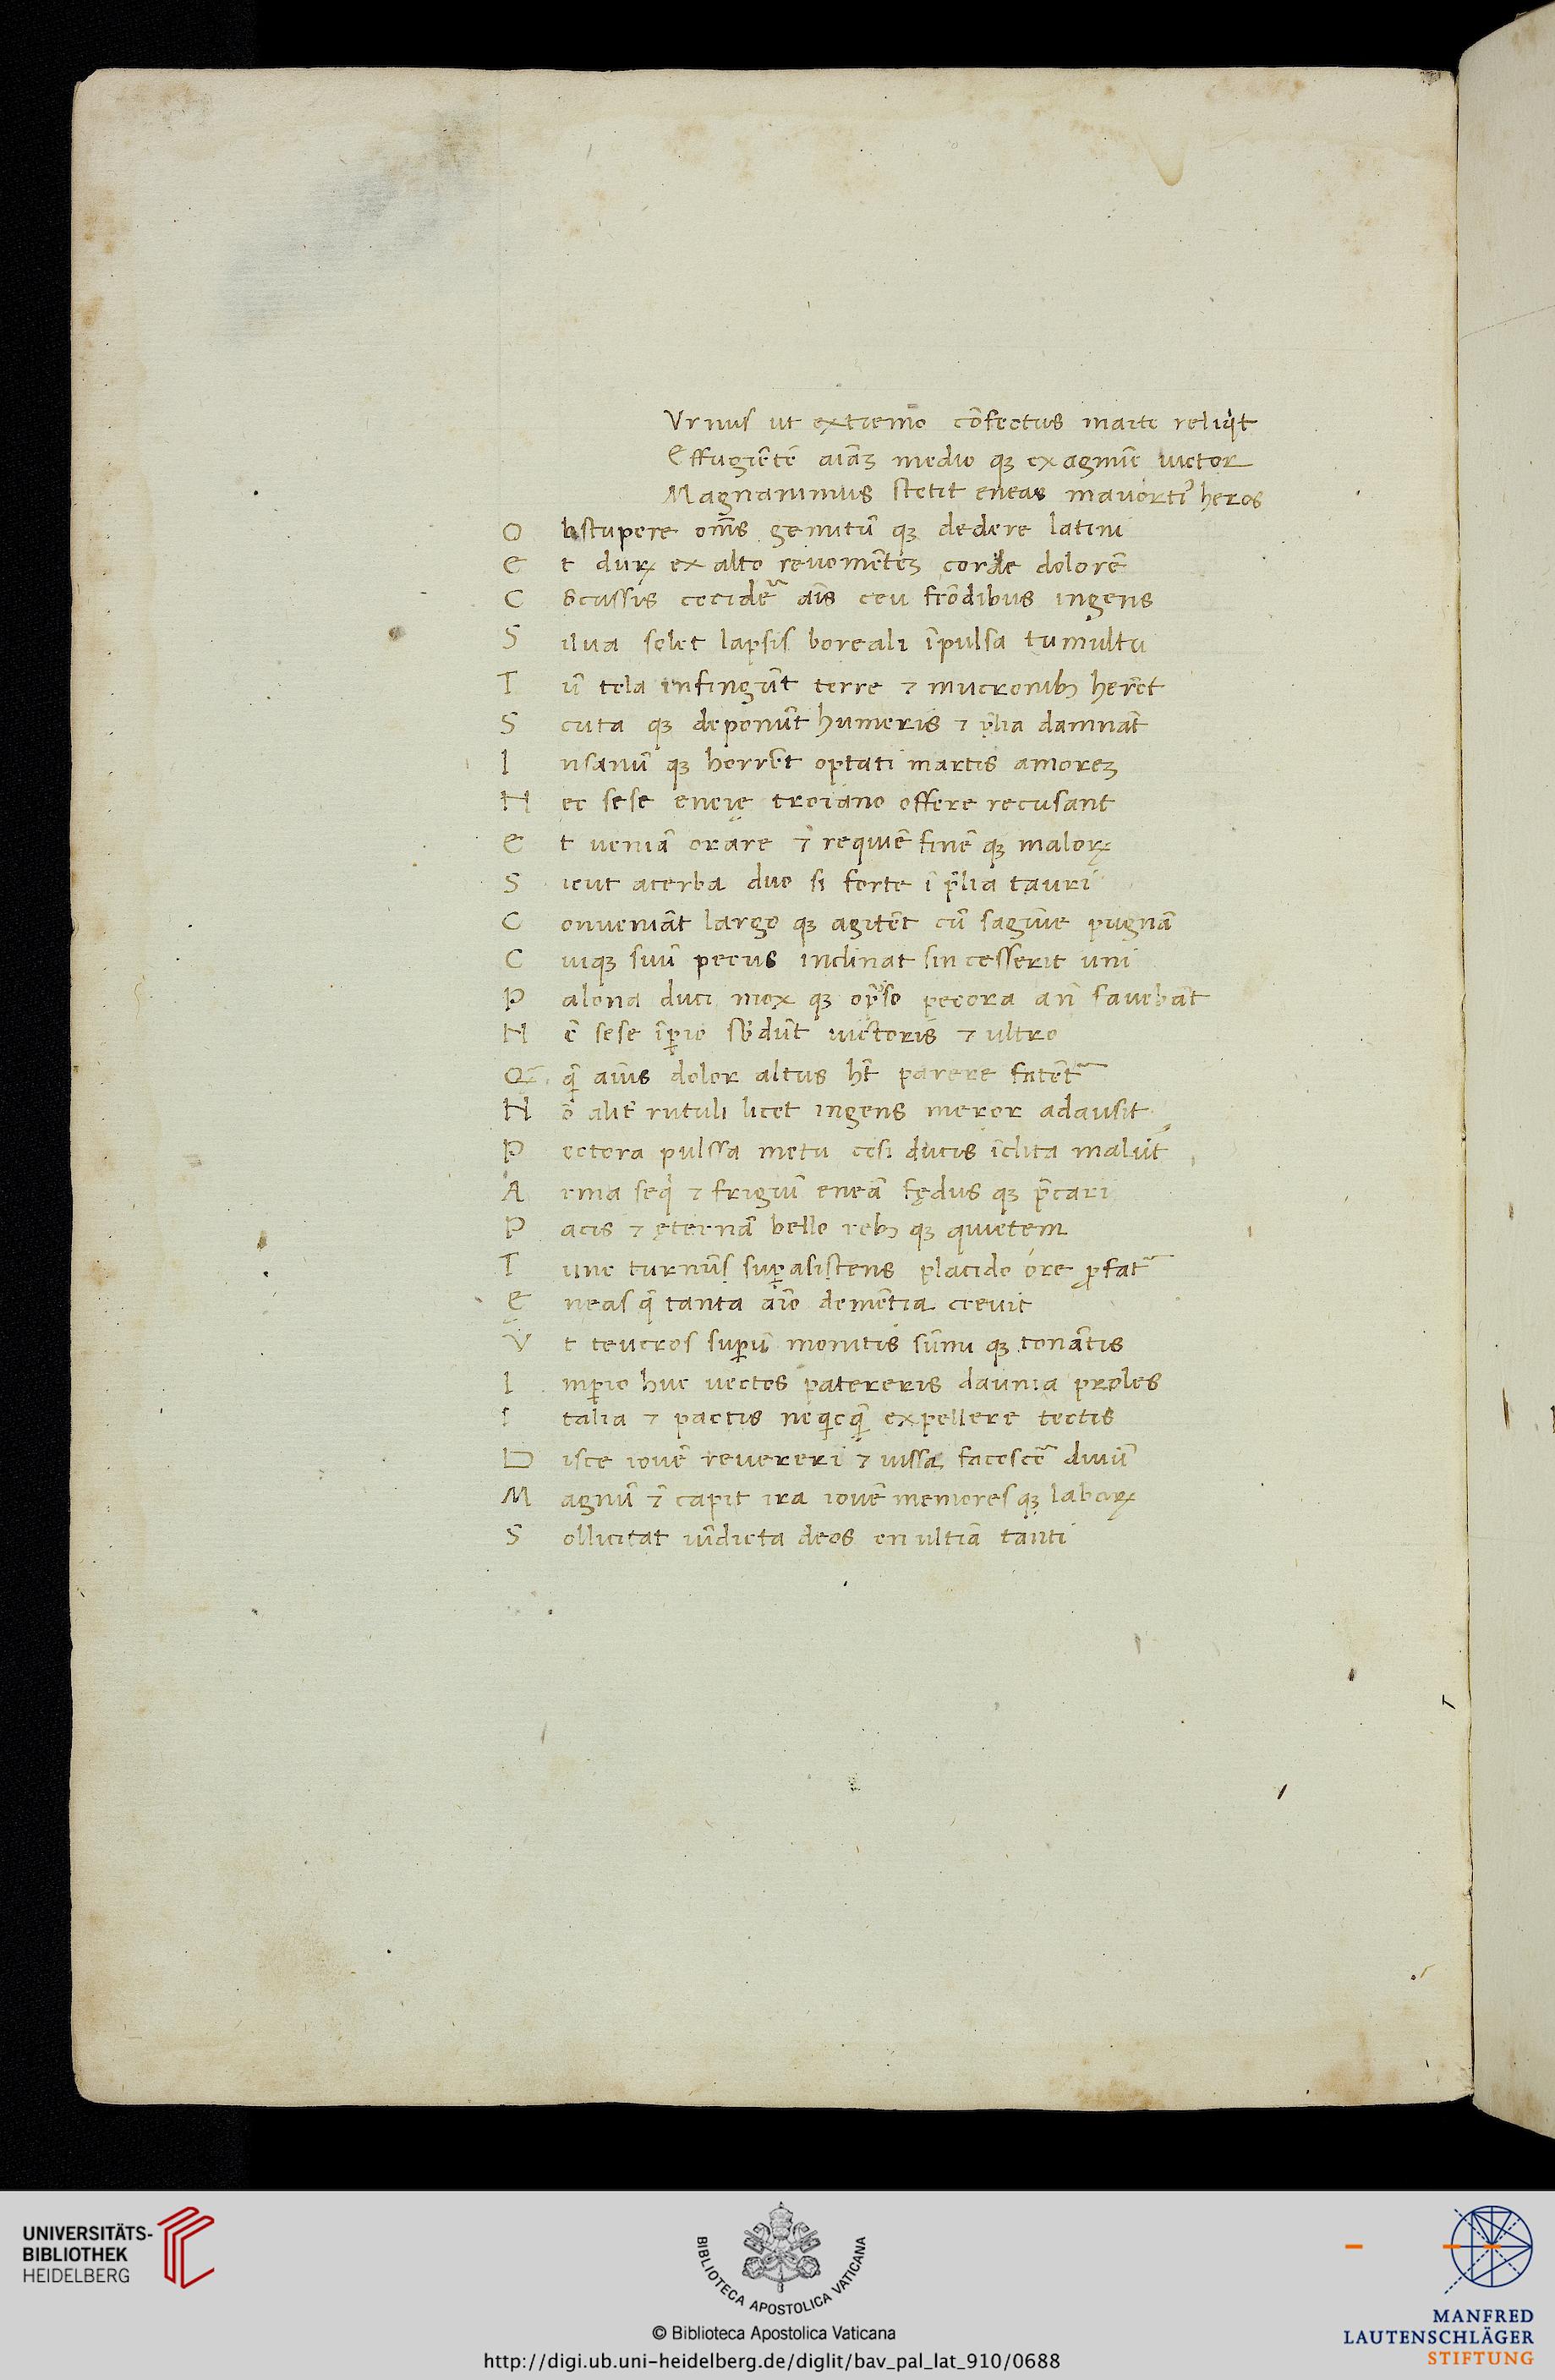 Vrnus ut extremo cōfectus marte reliqͥt
Effugiētē aiāꝫ medio qꝫ ex agmīe uictor
Magnanimus stetit eneas mavortiꝰ heros
O bstupere om̄s gemitū qꝫ dedere latini
E t durꝝ ex alto revomētēꝫ corde dolorē
C ōcussis cecider̄ aīs ceu frōdibus ingens
S ilua solet lapsis boreali īpulsa tumultu
T ū tela infingūt terre ⁊ mucronibꝫ herēt
S cuta qꝫ deponūt humeris ⁊ p̄lia damnāt
I nsanū qꝫ horrēt optati martis amoreꝫ
N ec sese eneie troiano offere recusant
E t ueniā orare ⁊̄ requiē finē qꝫ malorꝝ
S icut acerba duo si forte ī p̄lia tauri
C onueniāt largo qꝫ agitēt cū sagīne pugnā
C uiqꝫ suū pecus inclinat sin cesserit uni
P alona duci mox qꝫ op̄so pecora an̄ fauebāt
N ē sese īꝑio sb̄dūt uictoris ⁊ ultro
Q̄ꝫ qͣ aīos dolor altus h̄t parere fatēt᷑
N ō alit̄ rutuli licet ingens meror adausit
P ectora pulssa metu cesi ducis īclita malūt
A rma seqͥ ⁊ frigiū eneā fędus qꝫ p̄cari
P acis ⁊ ęternā bello rebꝫ qꝫ quietem
T unc turnūs suꝑasistens placido ore ꝓfat᷑
E neas qͣ tanta aīo demētia crevit
V t teucros suꝑū monitis sūmi qꝫ tonātis
I mꝑio huc uectos patereris daunia proles
I talia ⁊ pactis neqͥcqͣ expellere tectis
D isce iouē revereri ⁊ iussa facescē diuū
M agnū ⁊̄ capit ira iouē memores qꝫ laborꝝ
S ollicitat uīdicta deos en ultiā tanti
UNIVERSITÄTS-
BIBLIOTHEK
HEIDELBERG
BIBLIOTECA APOSTOLICA VATICANA
© Biblioteca Apostolica Vaticana
http://digi.ub.uni-heidelberg.de/diglit/bav_pal_lat_910/0688
MANFRED
LAUTENSCHLÄGER
STIFTUNG